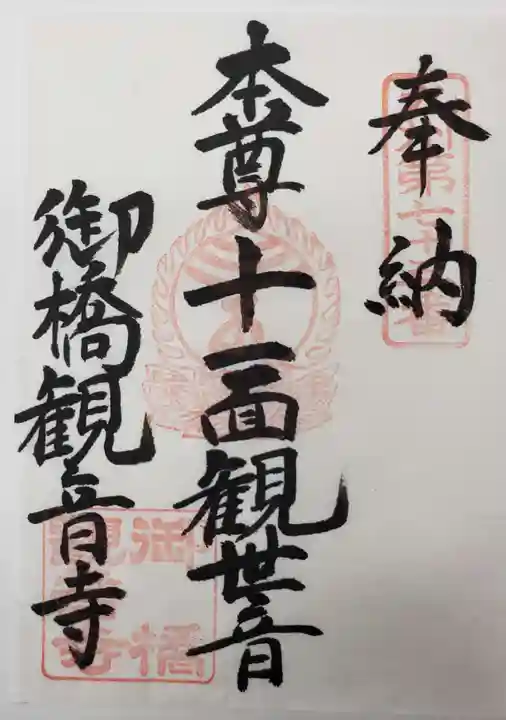 奉納
本尊十一面観世音
御橋観音寺
御橋
観音寺